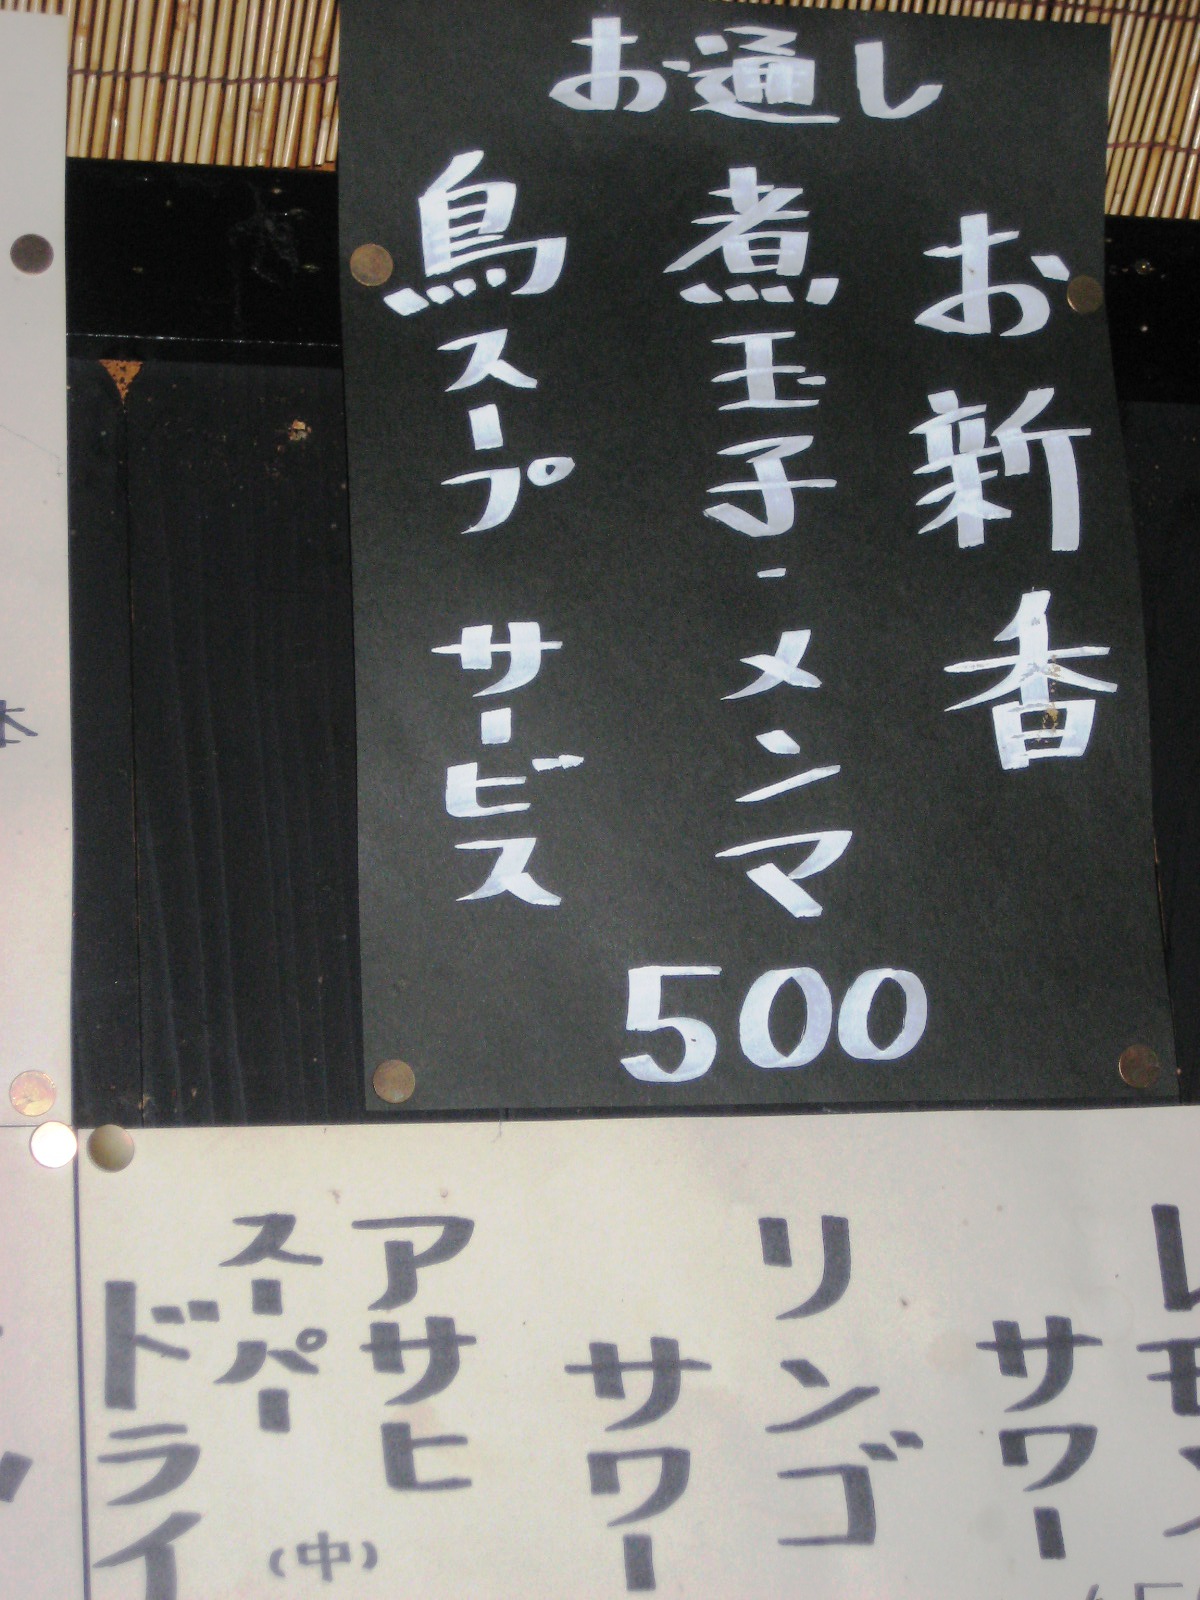 お通し
お新香
煮玉子・メンマ
鳥スープ サービス
500
レモン
サワー
リンゴ
サワー
アサヒ
スーパー
ドライ
(中)
本